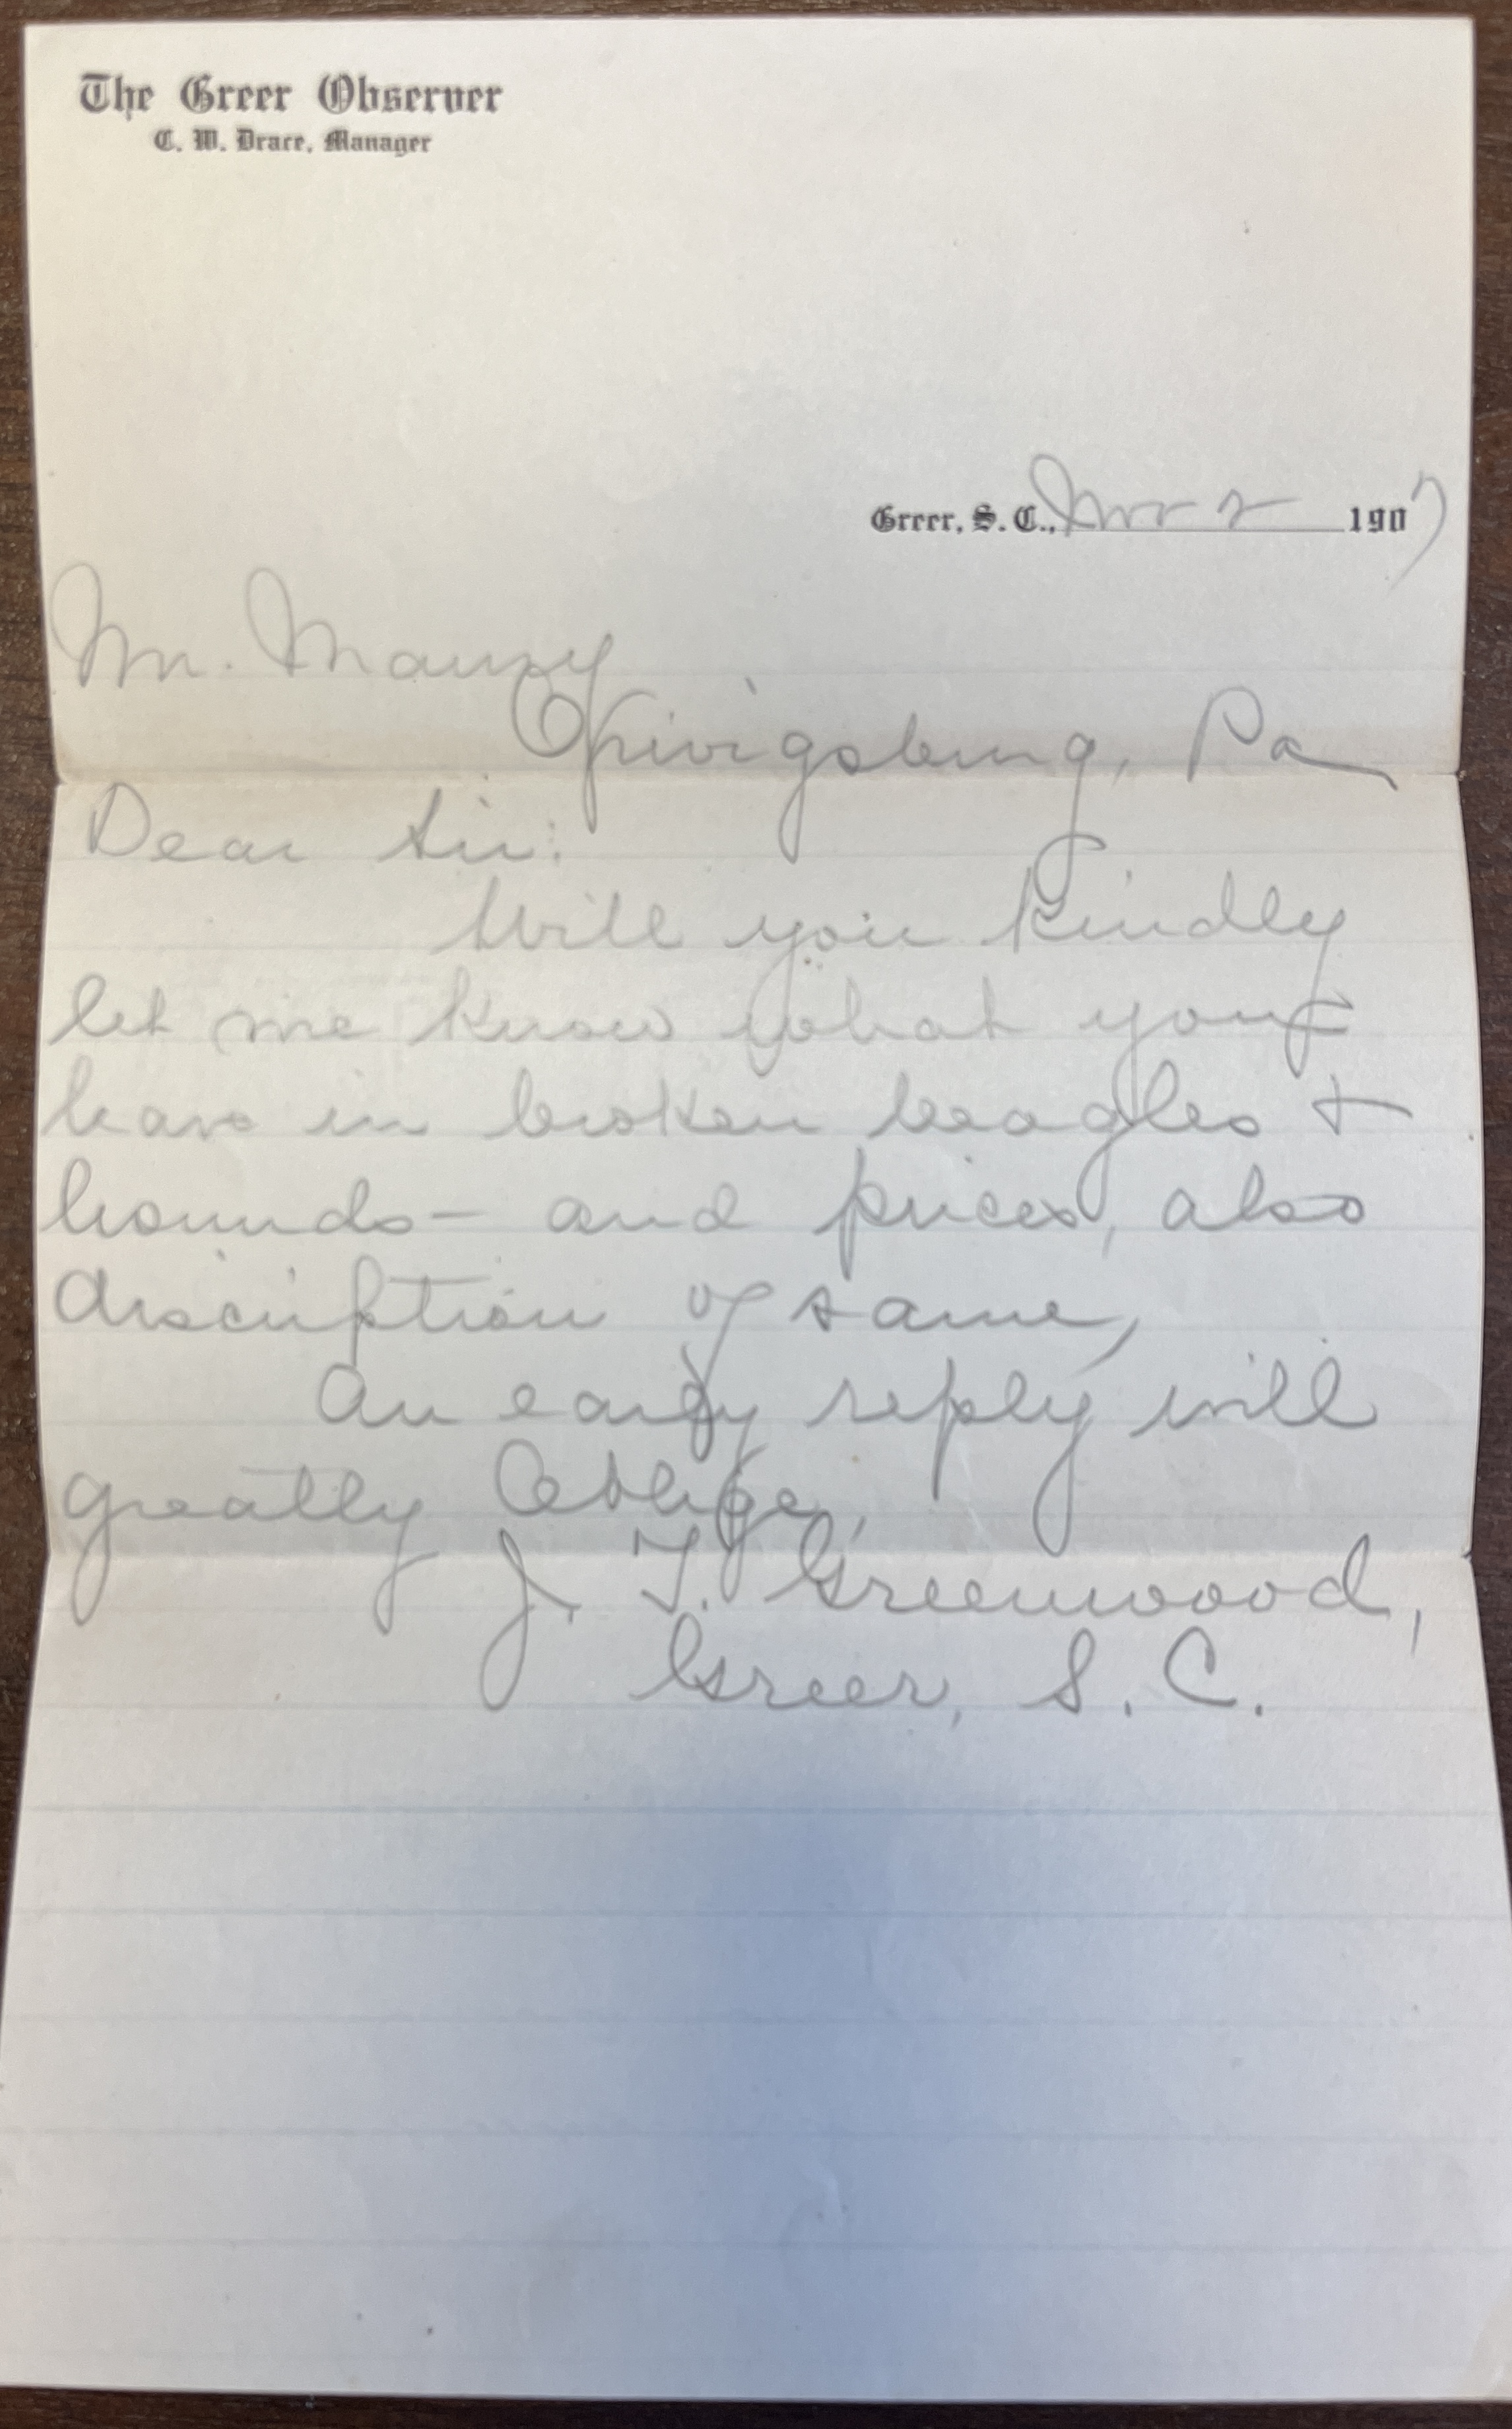 The Greer Observer
C. W. Drace, Manager
Greer, S. C., Nov 2 1907
Mr. Maury
Orwigsburg, Pa
Dear Sir:
Will you kindly
let me know what you
have in broken beagles +
hounds - and prices, also
discription of same,
An early reply will
greatly Oblige,
J. T. Greenwood,
Greer, S. C.